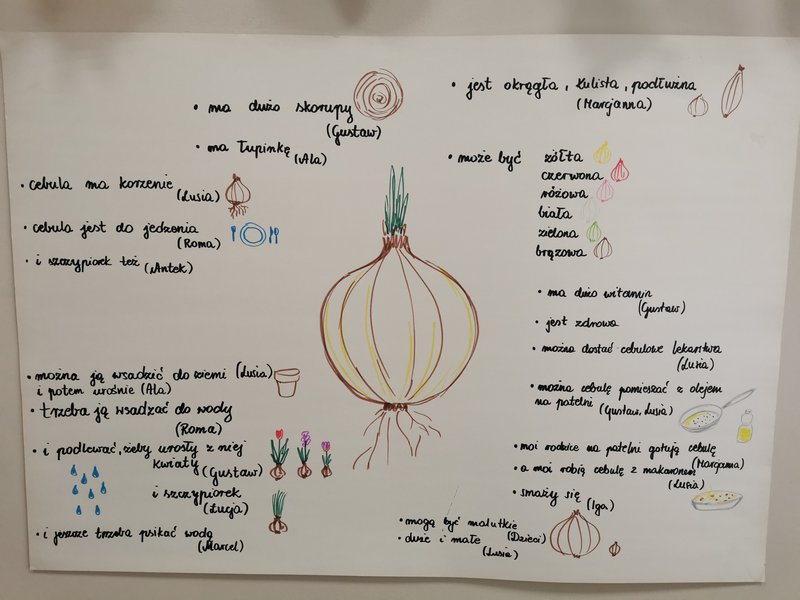 • ma dużo skorupy
(Gustaw)
• ma łupinkę
(Ala)
• cebula ma korzenie
(Lusia)
• cebula jest do jedzenia
(Roma)
• i szczypiorek też (Antek)
• można ją wsadzić do ziemi (Lusia)
i potem urośnie (Ala)
• trzeba ją wsadzać do wody
(Roma)
• i podlewać, żeby urosły z niej
kwiaty
(Gustaw)
i szczypiorek
(Łucja)
• i jeszcze trzeba psikać wodą
(Marcel)
• jest okrągła, kulista, podłużna
(Marjanna)
• może być żółta
czerwona
różowa
biała
zielona
brązowa
• ma dużo witamin
(Gustaw)
• jest zdrowa
• można dostać cebulowe lekarstwa
(Lusia)
• można cebulę pomieszać z olejem
na patelni (Gustaw, Lusia)
• moi rodzice na patelni gotują cebulę
(Marjanna)
• a moi robią cebulę z makaronem
(Lusia)
• smaży się (Iga)
• mogą być malutkie
(Dzieci)
• duże i małe
(Lusia)